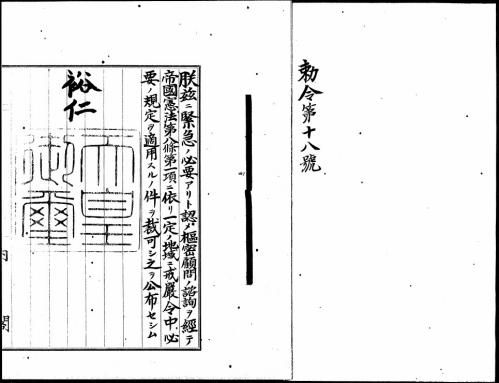 勅令第十八號
朕玆ニ緊急ノ必要アリト認メ樞密顧問ノ諮詢ヲ經テ
帝國憲法第八條第一項ニ依リ一定ノ地域ニ戒嚴令中必
要ノ規定ヲ適用スルノ件ヲ裁可シ之ヲ公布セシム
裕仁
天皇御璽
內閣